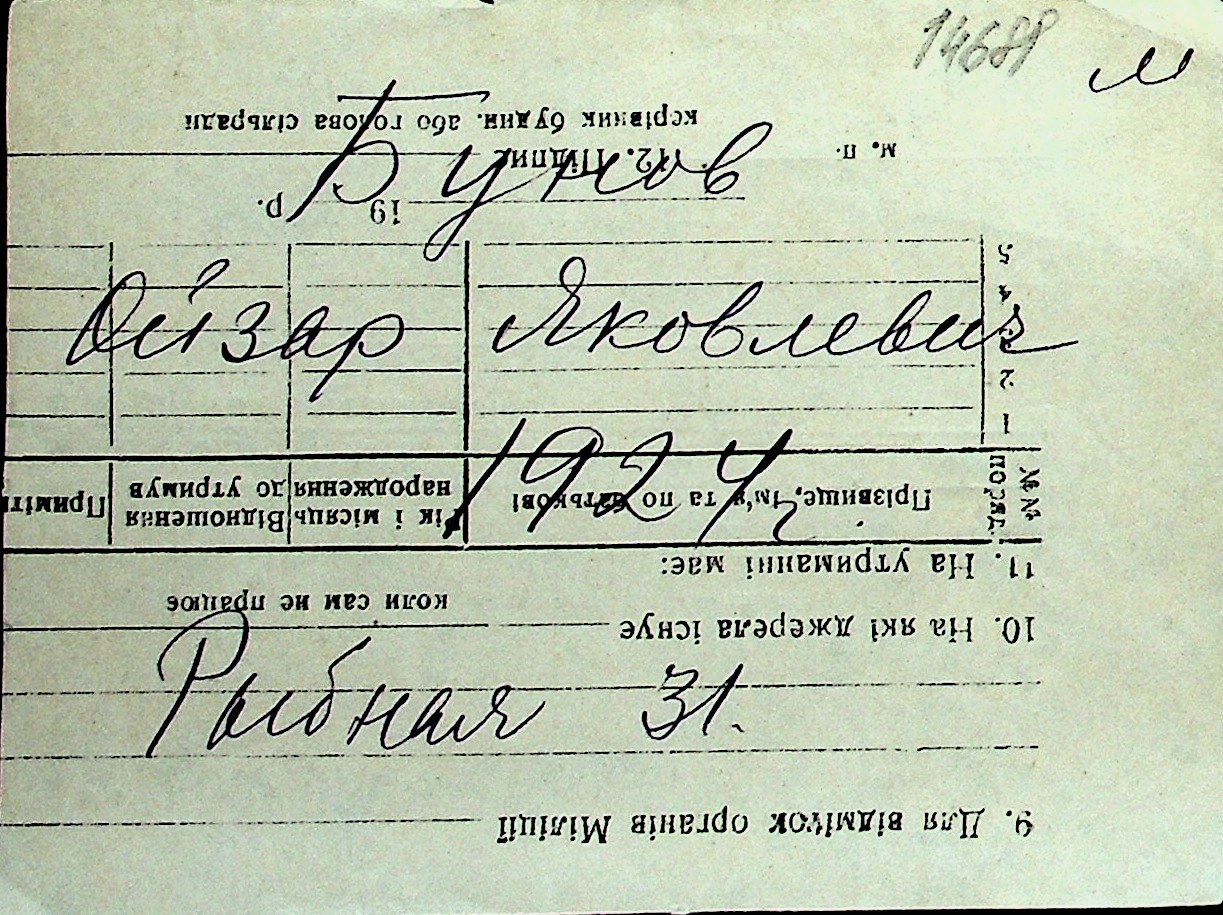 14688 м
Бунов
Ойзар Яковлевич
1924 г.
Рыбная 31.
9. Для відміток органів Міліції
10. На які джерела існує
коли сам не працює
11. На утриманні має:
№№ поряд. Прізвище, ім'я та по батькові Рік і місяць народження Відношення до утримув Приміти
1
2
3
4
5
19 р.
м. п. 12. Підпис
керівник будин. або голова сільради